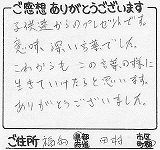 ご感想 ありがとうございます
子供達からのプレゼントです。
意味、深い言葉でした。
これからも この言葉の様に
生きていけたらと思います。
ありがとうございました。
ご住所 福島 都道府県 田村 市区町村